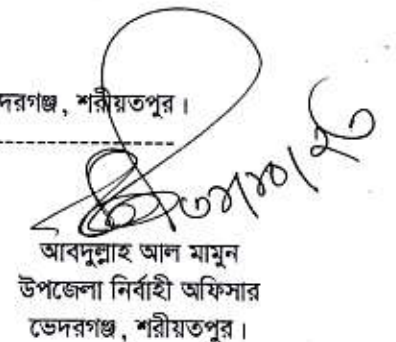 দরগঞ্জ, শরীয়তপুর।
আবদুল্লাহ আল মামুন
উপজেলা নির্বাহী অফিসার
ভেদরগঞ্জ, শরীয়তপুর।